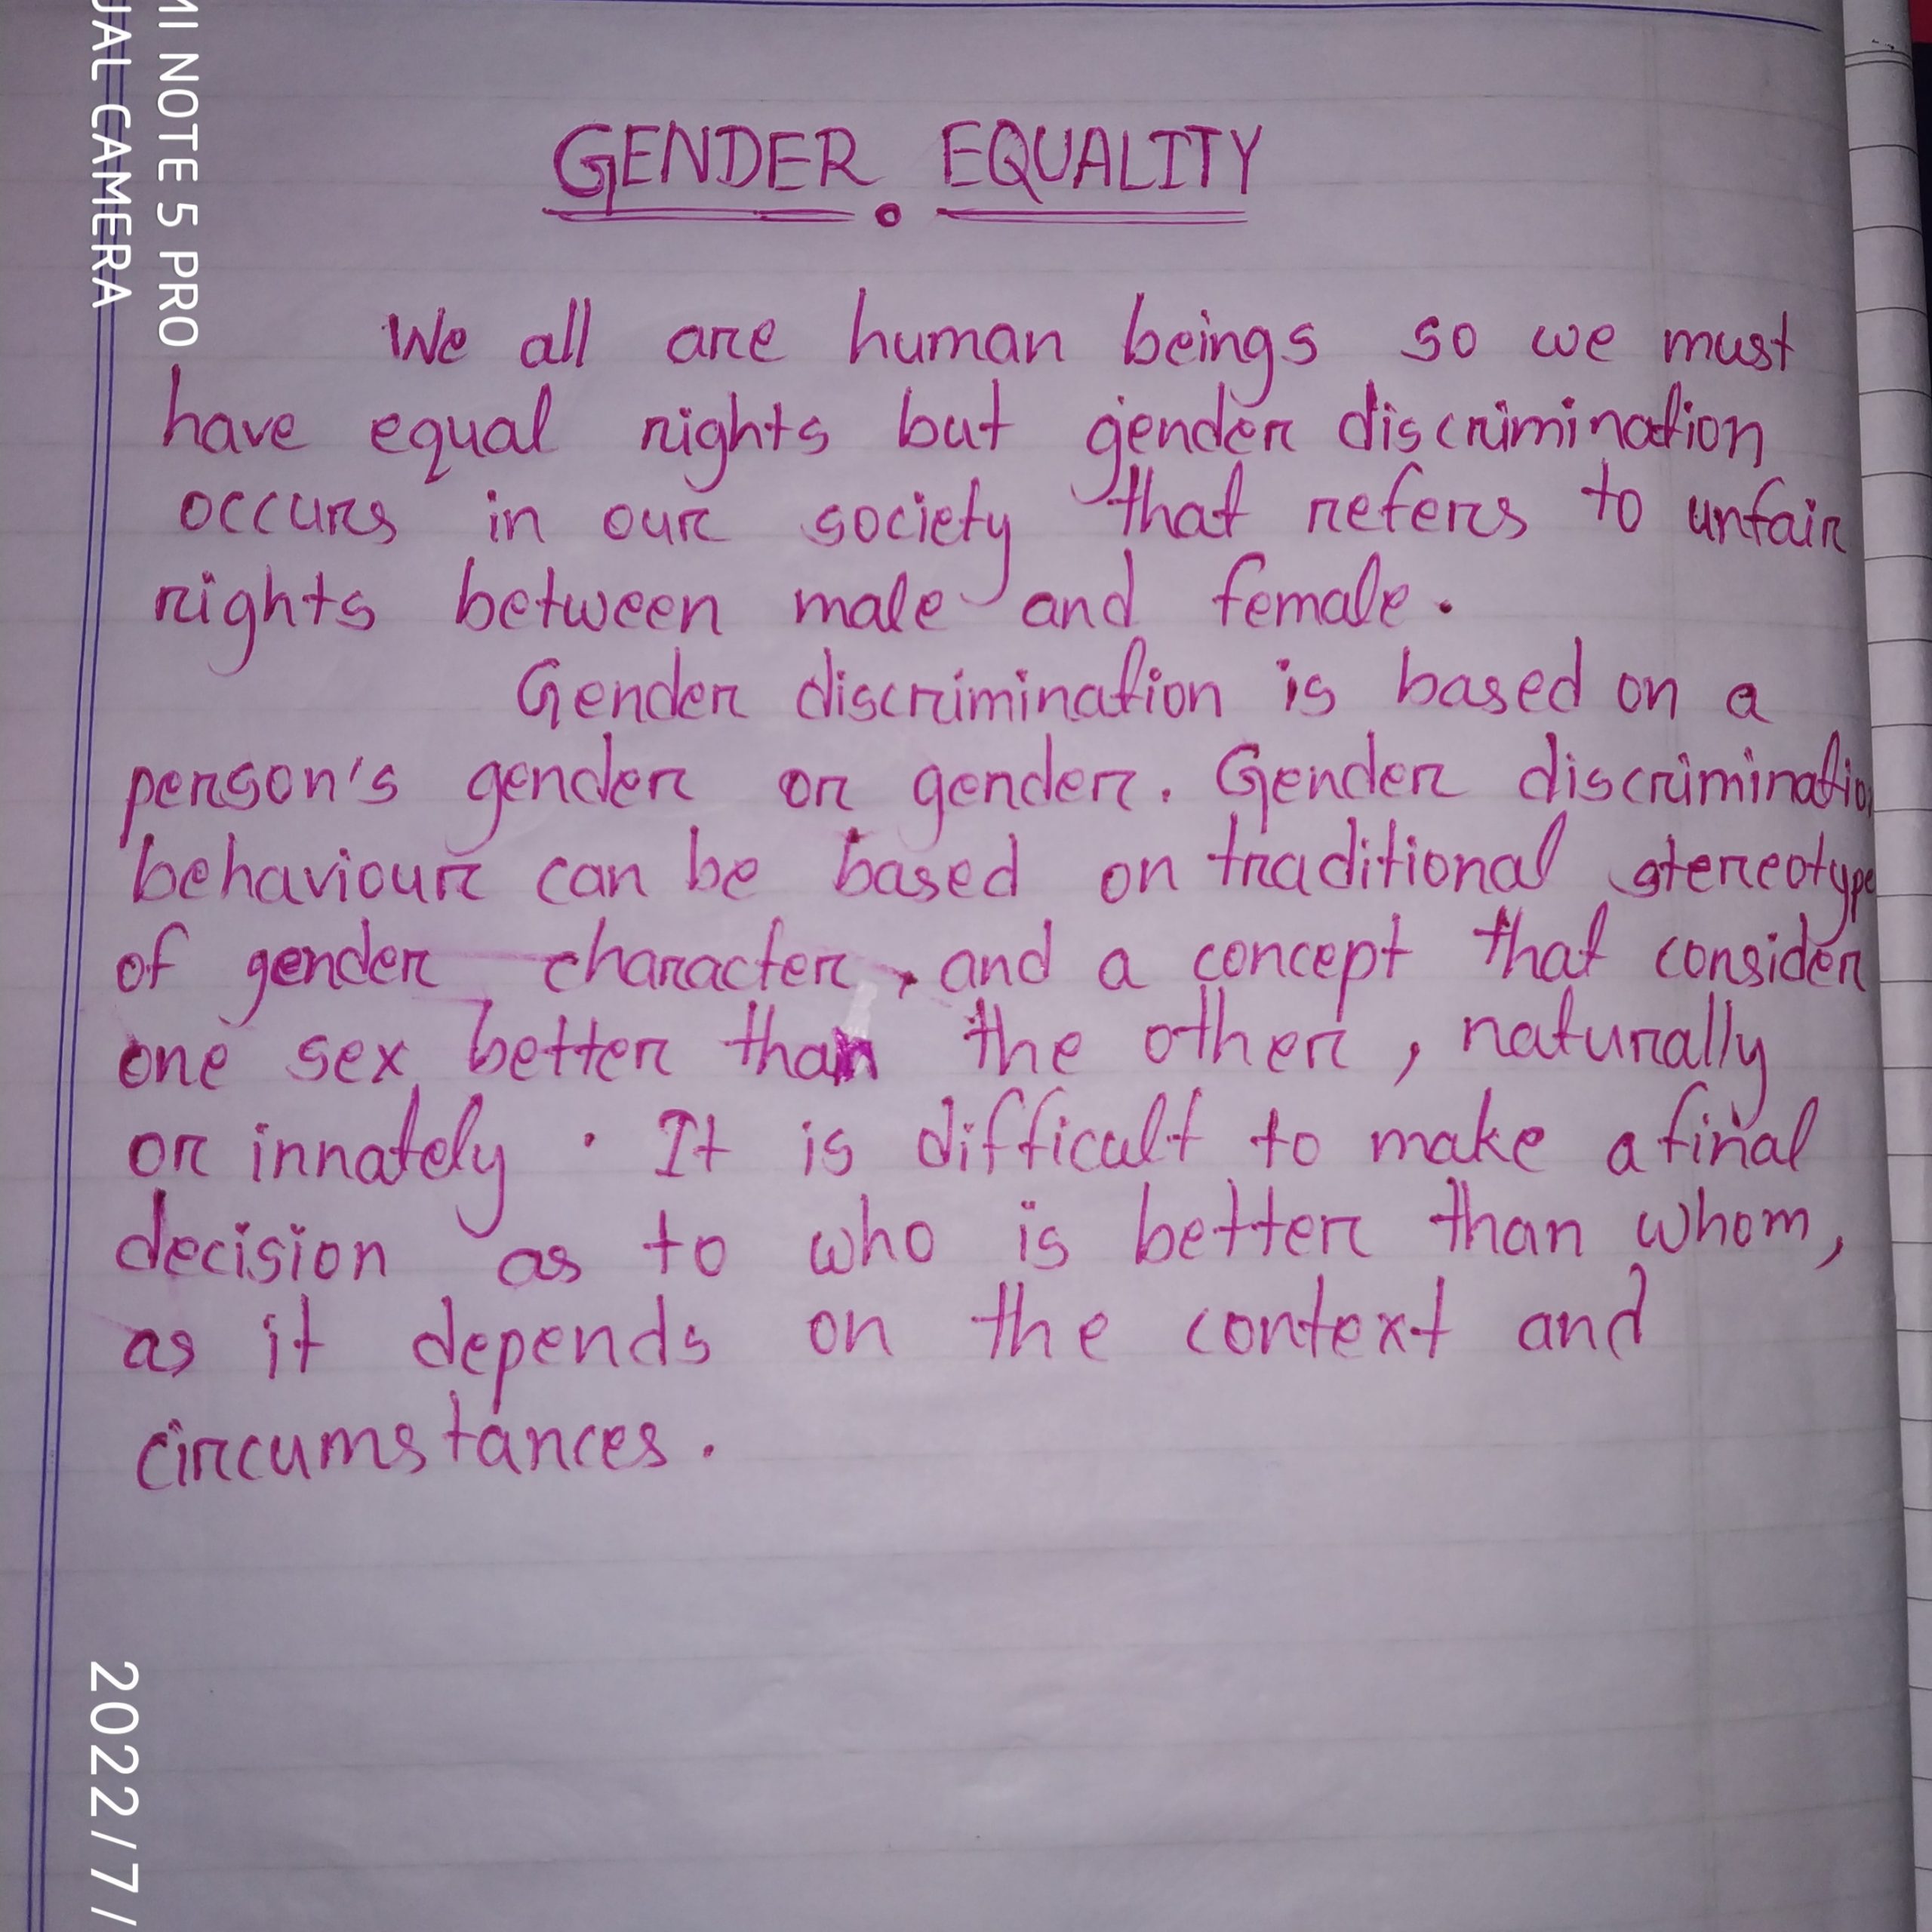 GENDER EQUALITY
We all are human beings so we must
have equal rights but gender discrimination
occurs in our society that refers to unfair
rights between male and female.
Gender discrimination is based on a
person's gender or gender. Gender discrimination
behaviour can be based on traditional stereotype
of gender character, and a concept that consider
one sex better than the other, naturally
or innately. It is difficult to make a final
decision as to who is better than whom,
as it depends on the context and
circumstances.
MI NOTE 5 PRO
UAL CAMERA
2022/7/